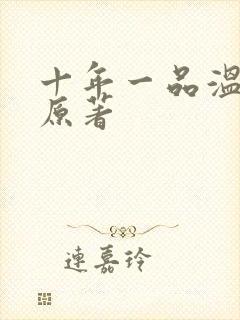 十年一品温
原著
連嘉玲